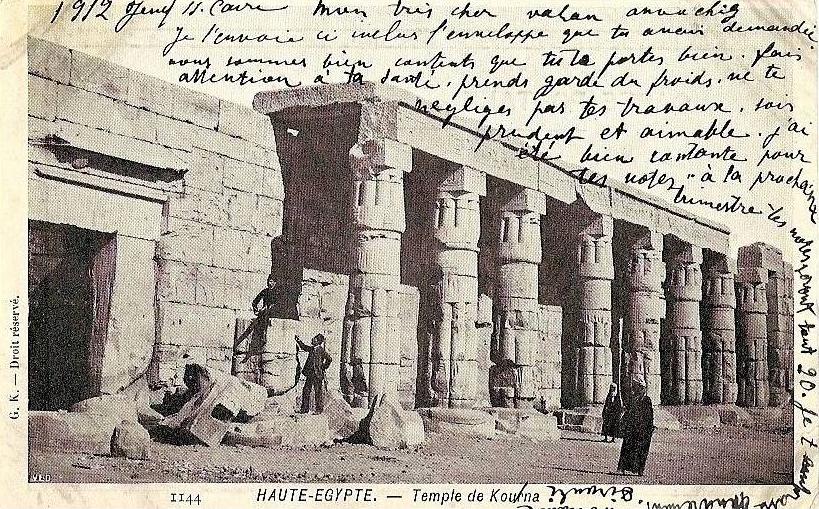 1912 11. Caire Mon très cher vahan
Je t'envoie ci inclus l'enveloppe que tu avais demandée
nous sommes bien contents que tu te portes bien. fais
attention à ta santé, prends garde du froids. ne te
négliges pas tes travaux, sois
prudent et aimable. j'ai
été bien contante pour
tes notes " à la prochaine
trimestre tes notes
tout 20. Je t'
G. K. — Droit réservé.
VED
1144 HAUTE-EGYPTE. — Temple de Kourna